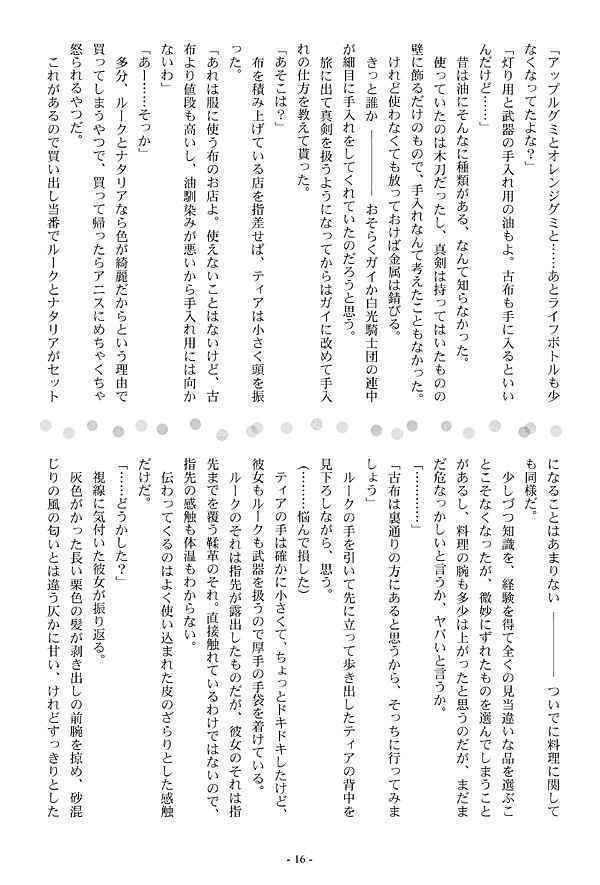 「アップルグミとオレンジグミと……あとライフボトルも少
なくなってたよな？」
「灯り用と武器の手入れ用の油もよ。古布も手に入るといい
んだけど……」
　昔は油にそんなに種類がある、なんて知らなかった。
　使っていたのは木刀だったし、真剣は持ってはいたものの
壁に飾るだけのもので、手入れなんて考えたこともなかった。
　けれど使わなくても放っておけば金属は錆びる。
　きっと誰か ――― おそらくガイか白光騎士団の連中
が細目に手入れをしてくれていたのだろうと思う。
　旅に出て真剣を扱うようになってからはガイに改めて手入
れの仕方を教えて貰った。
「あそこは？」
　布を積み上げている店を指差せば、ティアは小さく頭を振
った。
「あれは服に使う布のお店よ。使えないことはないけど、古
布より値段も高いし、油馴染みが悪いから手入れ用には向か
ないわ」
「あー……そっか」
　多分、ルークとナタリアなら色が綺麗だからという理由で
買ってしまうやつで、買って帰ったらアニスにめちゃくちゃ
怒られるやつだ。
　これがあるので買い出し当番でルークとナタリアがセット
になることはあまりない ――― ついでに料理に関して
も同様だ。
　少しづつ知識を、経験を得て全くの見当違いな品を選ぶこ
とこそなくなったが、微妙にずれたものを選んでしまうこと
があるし、料理の腕も多少は上がったと思うのだが、まだま
だ危なっかしいと言うか、ヤバいと言うか。
「…………」
「古布は裏通りの方にあると思うから、そっちに行ってみま
しょう」
　ルークの手を引いて先に立って歩き出したティアの背中を
見下ろしながら、思う。
（………悩んで損した）
　ティアの手は確かに小さくて、ちょっとドキドキしたけど、
彼女もルークも武器を扱うので厚手の手袋を着けている。
　ルークのそれは指先が露出したものだが、彼女のそれは指
先までを覆う鞣革のそれ。直接触れているわけではないので、
指先の感触も体温もわからない。
　伝わってくるのはよく使い込まれた皮のざらりとした感触
だけだ。
「……どうかした？」
　視線に気付いた彼女が振り返る。
　灰色がかった長い栗色の髪が剥き出しの前腕を掠め、砂混
じりの風の匂いとは違う仄かに甘い、けれどすっきりとした
- 16 -